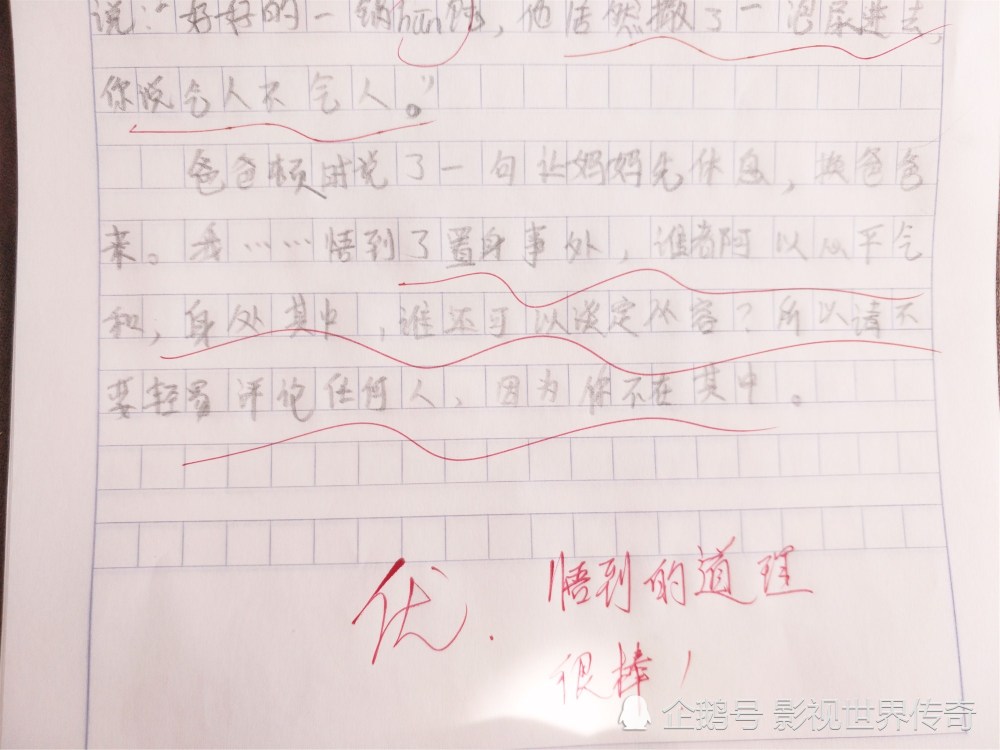 说：“好好的一锅hún饨，他居然撒了一泡尿进去，
你说气人不气人。”
爸爸顿时说了一句让妈妈先休息，换爸爸
来。我……悟到了置身事外，谁都可以心平气
和，身处其中，谁还可以淡定从容？所以请不
要轻易评论任何人，因为你不在其中。
优.
悟到的道理
很棒！
企鹅号 影视世界传奇